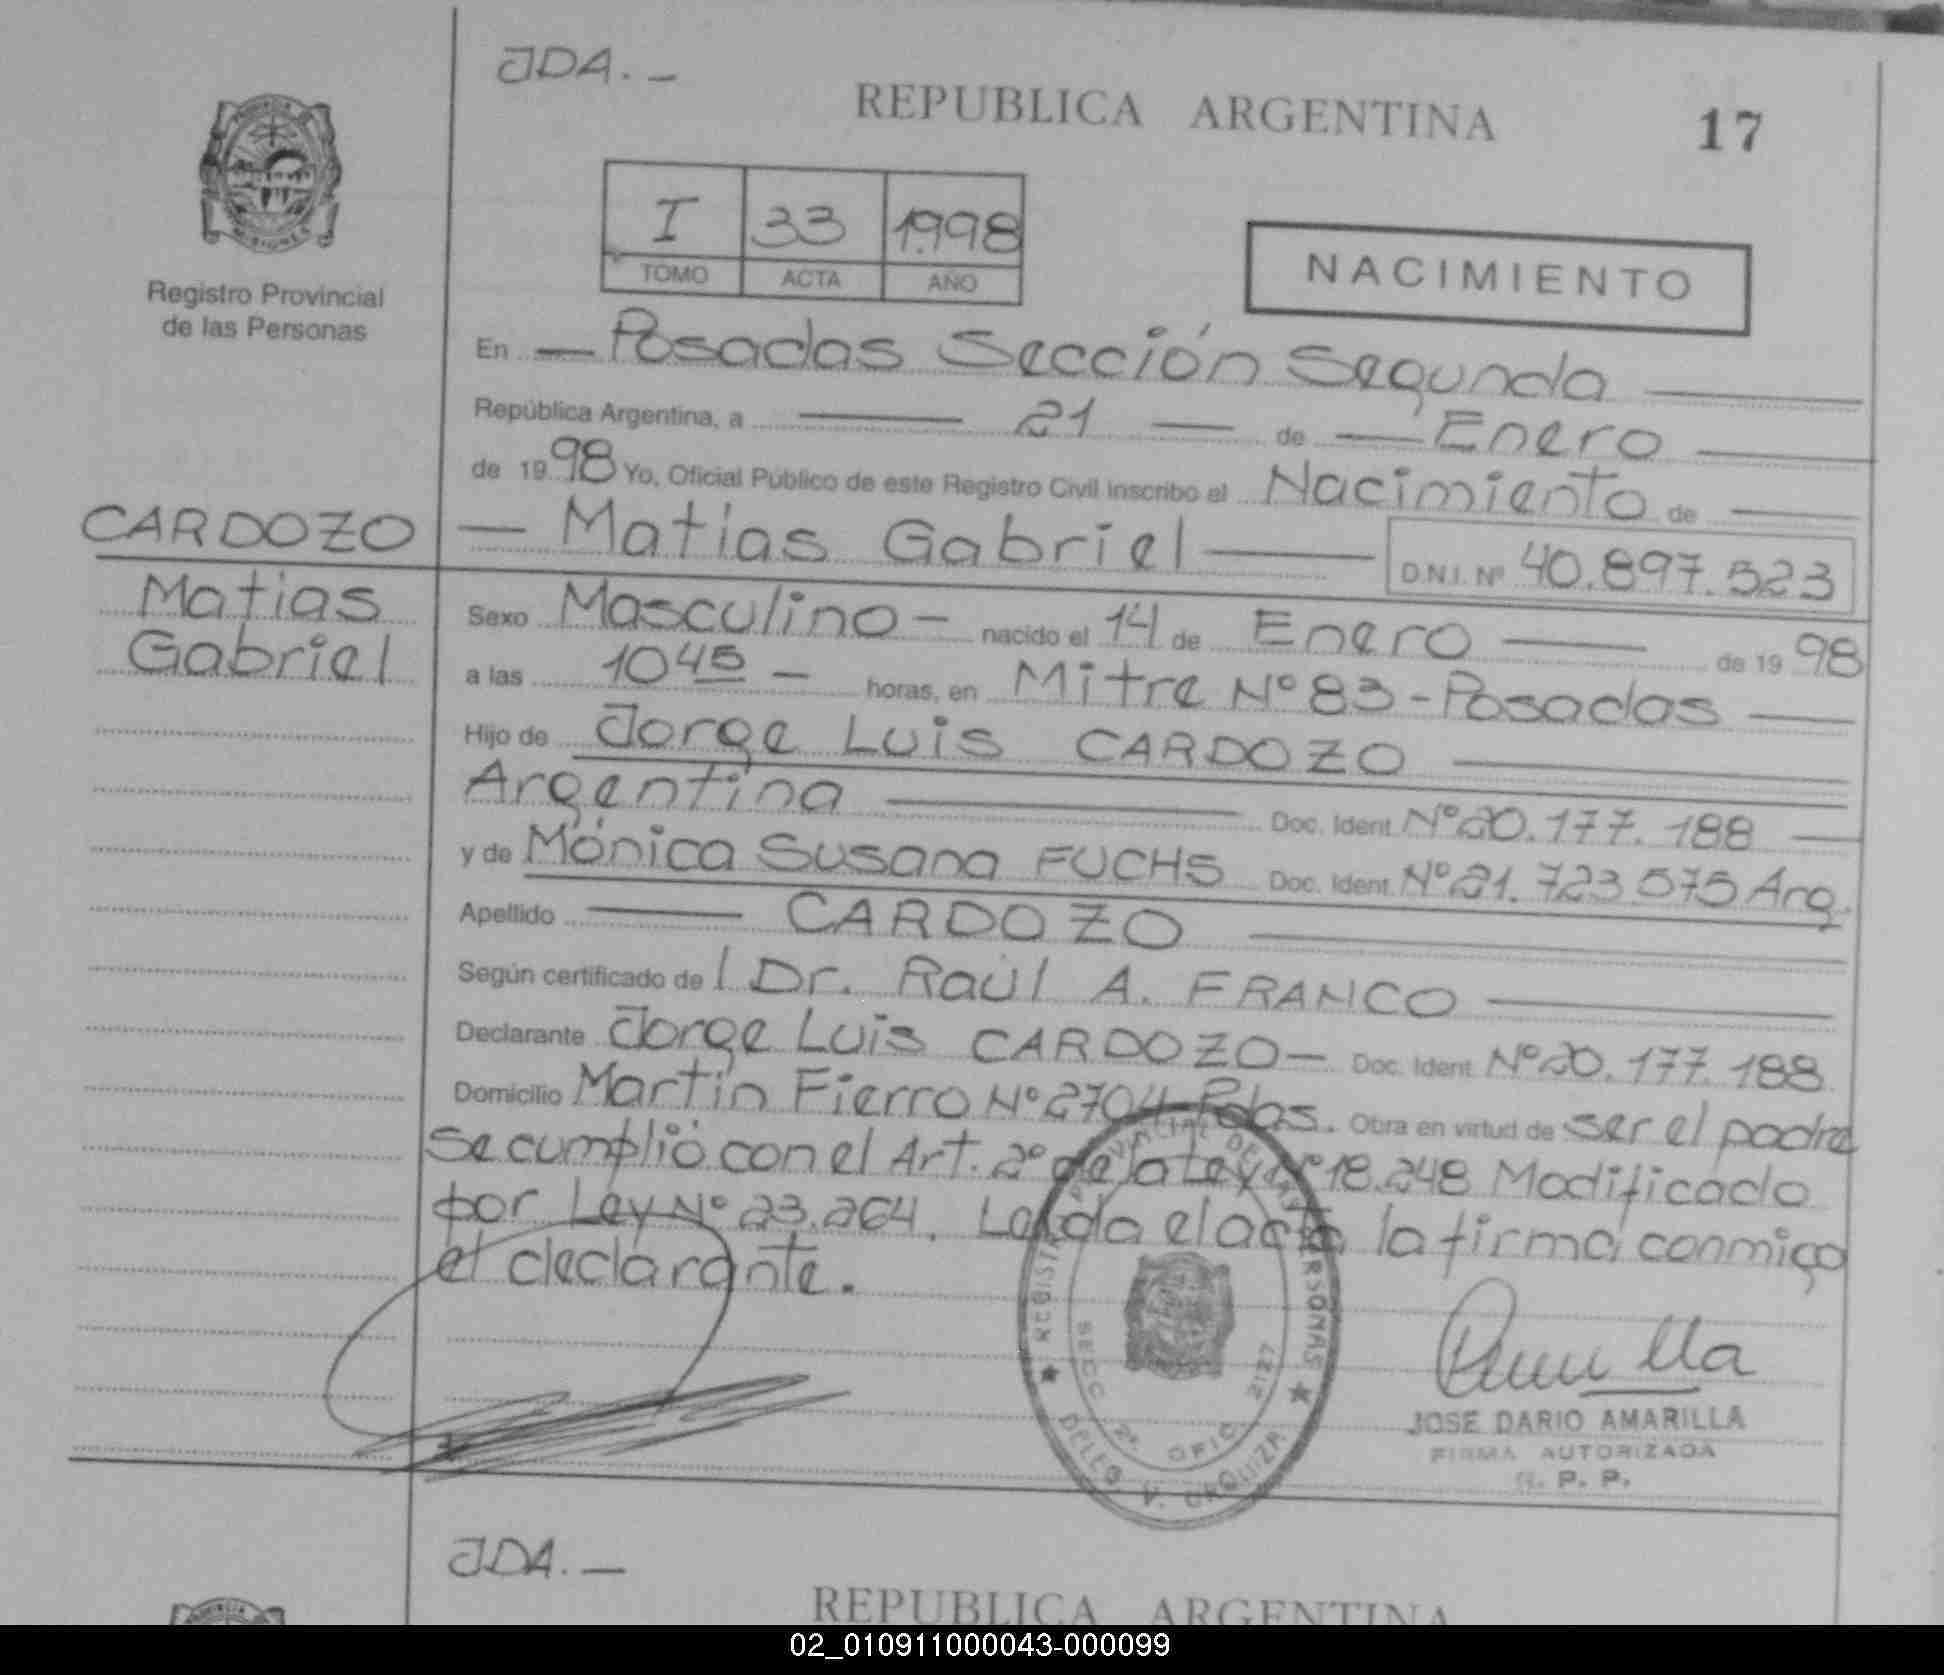 JDA. —
REPUBLICA ARGENTINA 17
PROVINCIA
MISIONES
Registro Provincial
de las Personas
I 33 1998
TOMO ACTA AÑO
NACIMIENTO
En — Posadas Sección Segunda —
República Argentina, a — 21 — de — Enero —
de 1998 Yo, Oficial Público de este Registro Civil inscribo el Nacimiento de —
CARDOZO — Matias Gabriel — D.N.I. Nº 40.897.523
Matias
Gabriel
Sexo Masculino — nacido el 14 de Enero — de 1998
a las 10 45 — horas, en Mitre Nº 83 - Posadas —
Hijo de Jorge Luis CARDOZO —
Argentina — Doc. Ident. Nº 20.177.188 —
y de Mónica Susana FUCHS Doc. Ident. Nº 21.723.575 Arg.
Apellido — CARDOZO —
Según certificado de l Dr. Raúl A. FRANCO —
Declarante Jorge Luis CARDOZO — Doc. Ident. Nº 20.177.188
Domicilio Martín Fierro Nº 2704 Pdas. Obra en virtud de ser el padre
Se cumplió con el Art. 2º de la Ley Nº 18.248 Modificado
por Ley Nº 23.264. Leída el acta la firma conmigo
el declarante.
REGISTRO PROVINCIAL DE LAS PERSONAS
SECC. 2ª. OFIC. 2127
DELEG. V. URQUIZA
JOSE DARIO AMARILLA
FIRMA AUTORIZADA
R. P. P.
JDA. —
REPUBLICA ARGENTINA
02_010911000043-000099